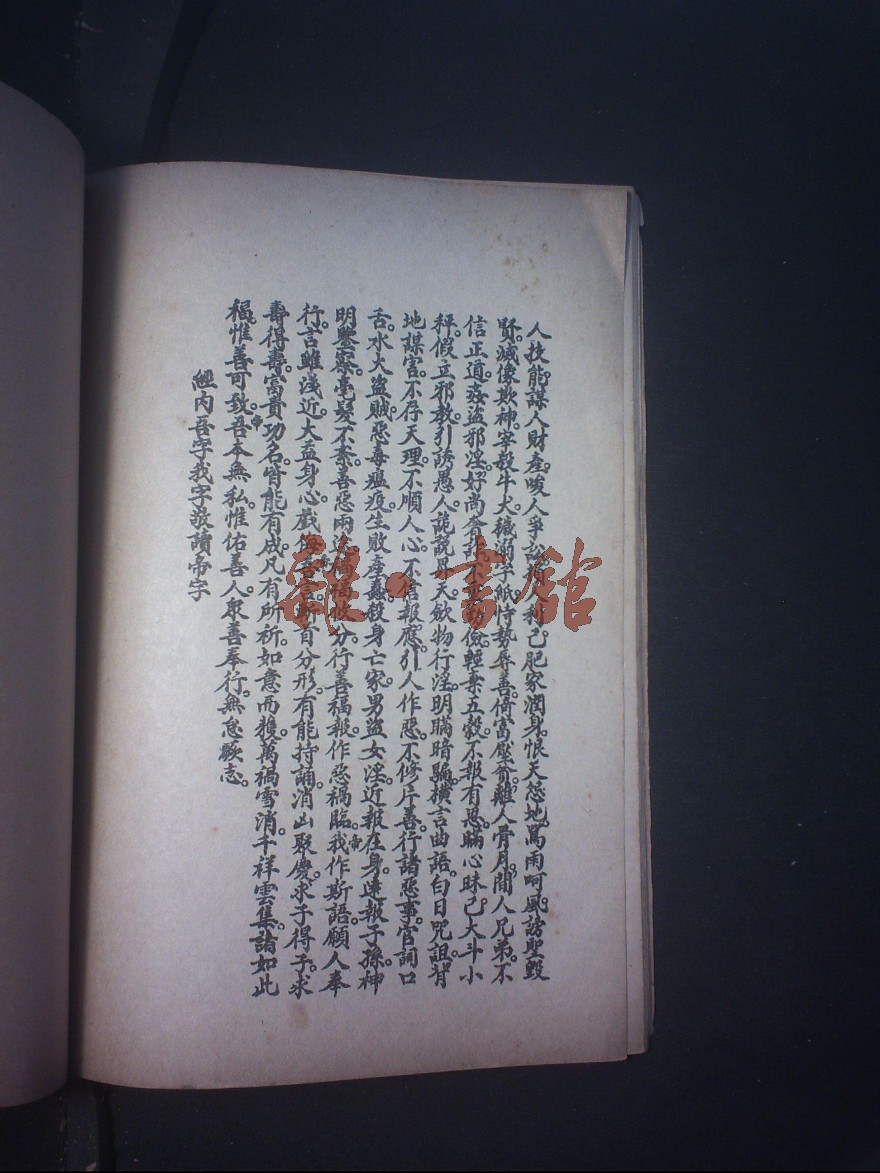 人技能。謀人財產。唆人爭訟。損人利己。肥家潤身。恨天怨地。罵雨呵風。謗聖毀
賢。滅像欺神。宰殺牛犬。穢溺字紙。恃勢辱善。倚富壓貧。離人骨月。間人兄弟。不
信正道。姦盜邪淫。好尚奢詐。不重勤儉。輕棄五穀。不報有恩。瞞心昧己。大斗小
秤。假立邪教。引誘愚人。詭說昇天。歛物行淫。明瞞暗騙。橫言曲語。白日咒詛。背
地謀害。不存天理。不順人心。不信報應。引人作惡。不修片善。行諸惡事。官詞口
舌。水火盜賊。惡毒瘟疫。生敗產蠢。殺身亡家。男盜女淫。近報在身。遠報子孫。神
明鑒察。毫髮不紊。善惡兩途。禍福攸分。行善福報。作惡禍臨。我帝作斯語。願人奉
行。言雖淺近。大益身心。戲侮吾帝言。斬首分形。有能持誦。消凶聚慶。求子得子。求
壽得壽。富貴功名。皆能有成。凡有所祈。如意而獲。萬禍雪消。千祥雲集。諸如此
福。惟善可致。吾帝本無私。惟佑善人。眾善奉行。無怠厥志。
經內吾字我字敬讀帝字
雜·書館